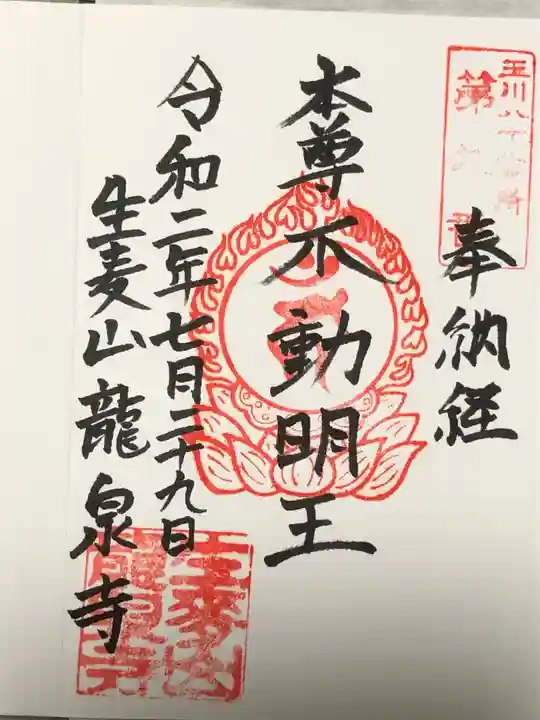 奉納経
本尊不動明王
令和二年七月二十九日
生麦山龍泉寺
玉川八十八ヶ所
生麦山
龍泉寺